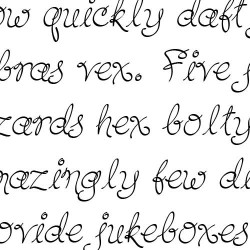 ow quickly daft
bras vex. Five
zards hex bolty
mazingly few di
ovide jukeboxes